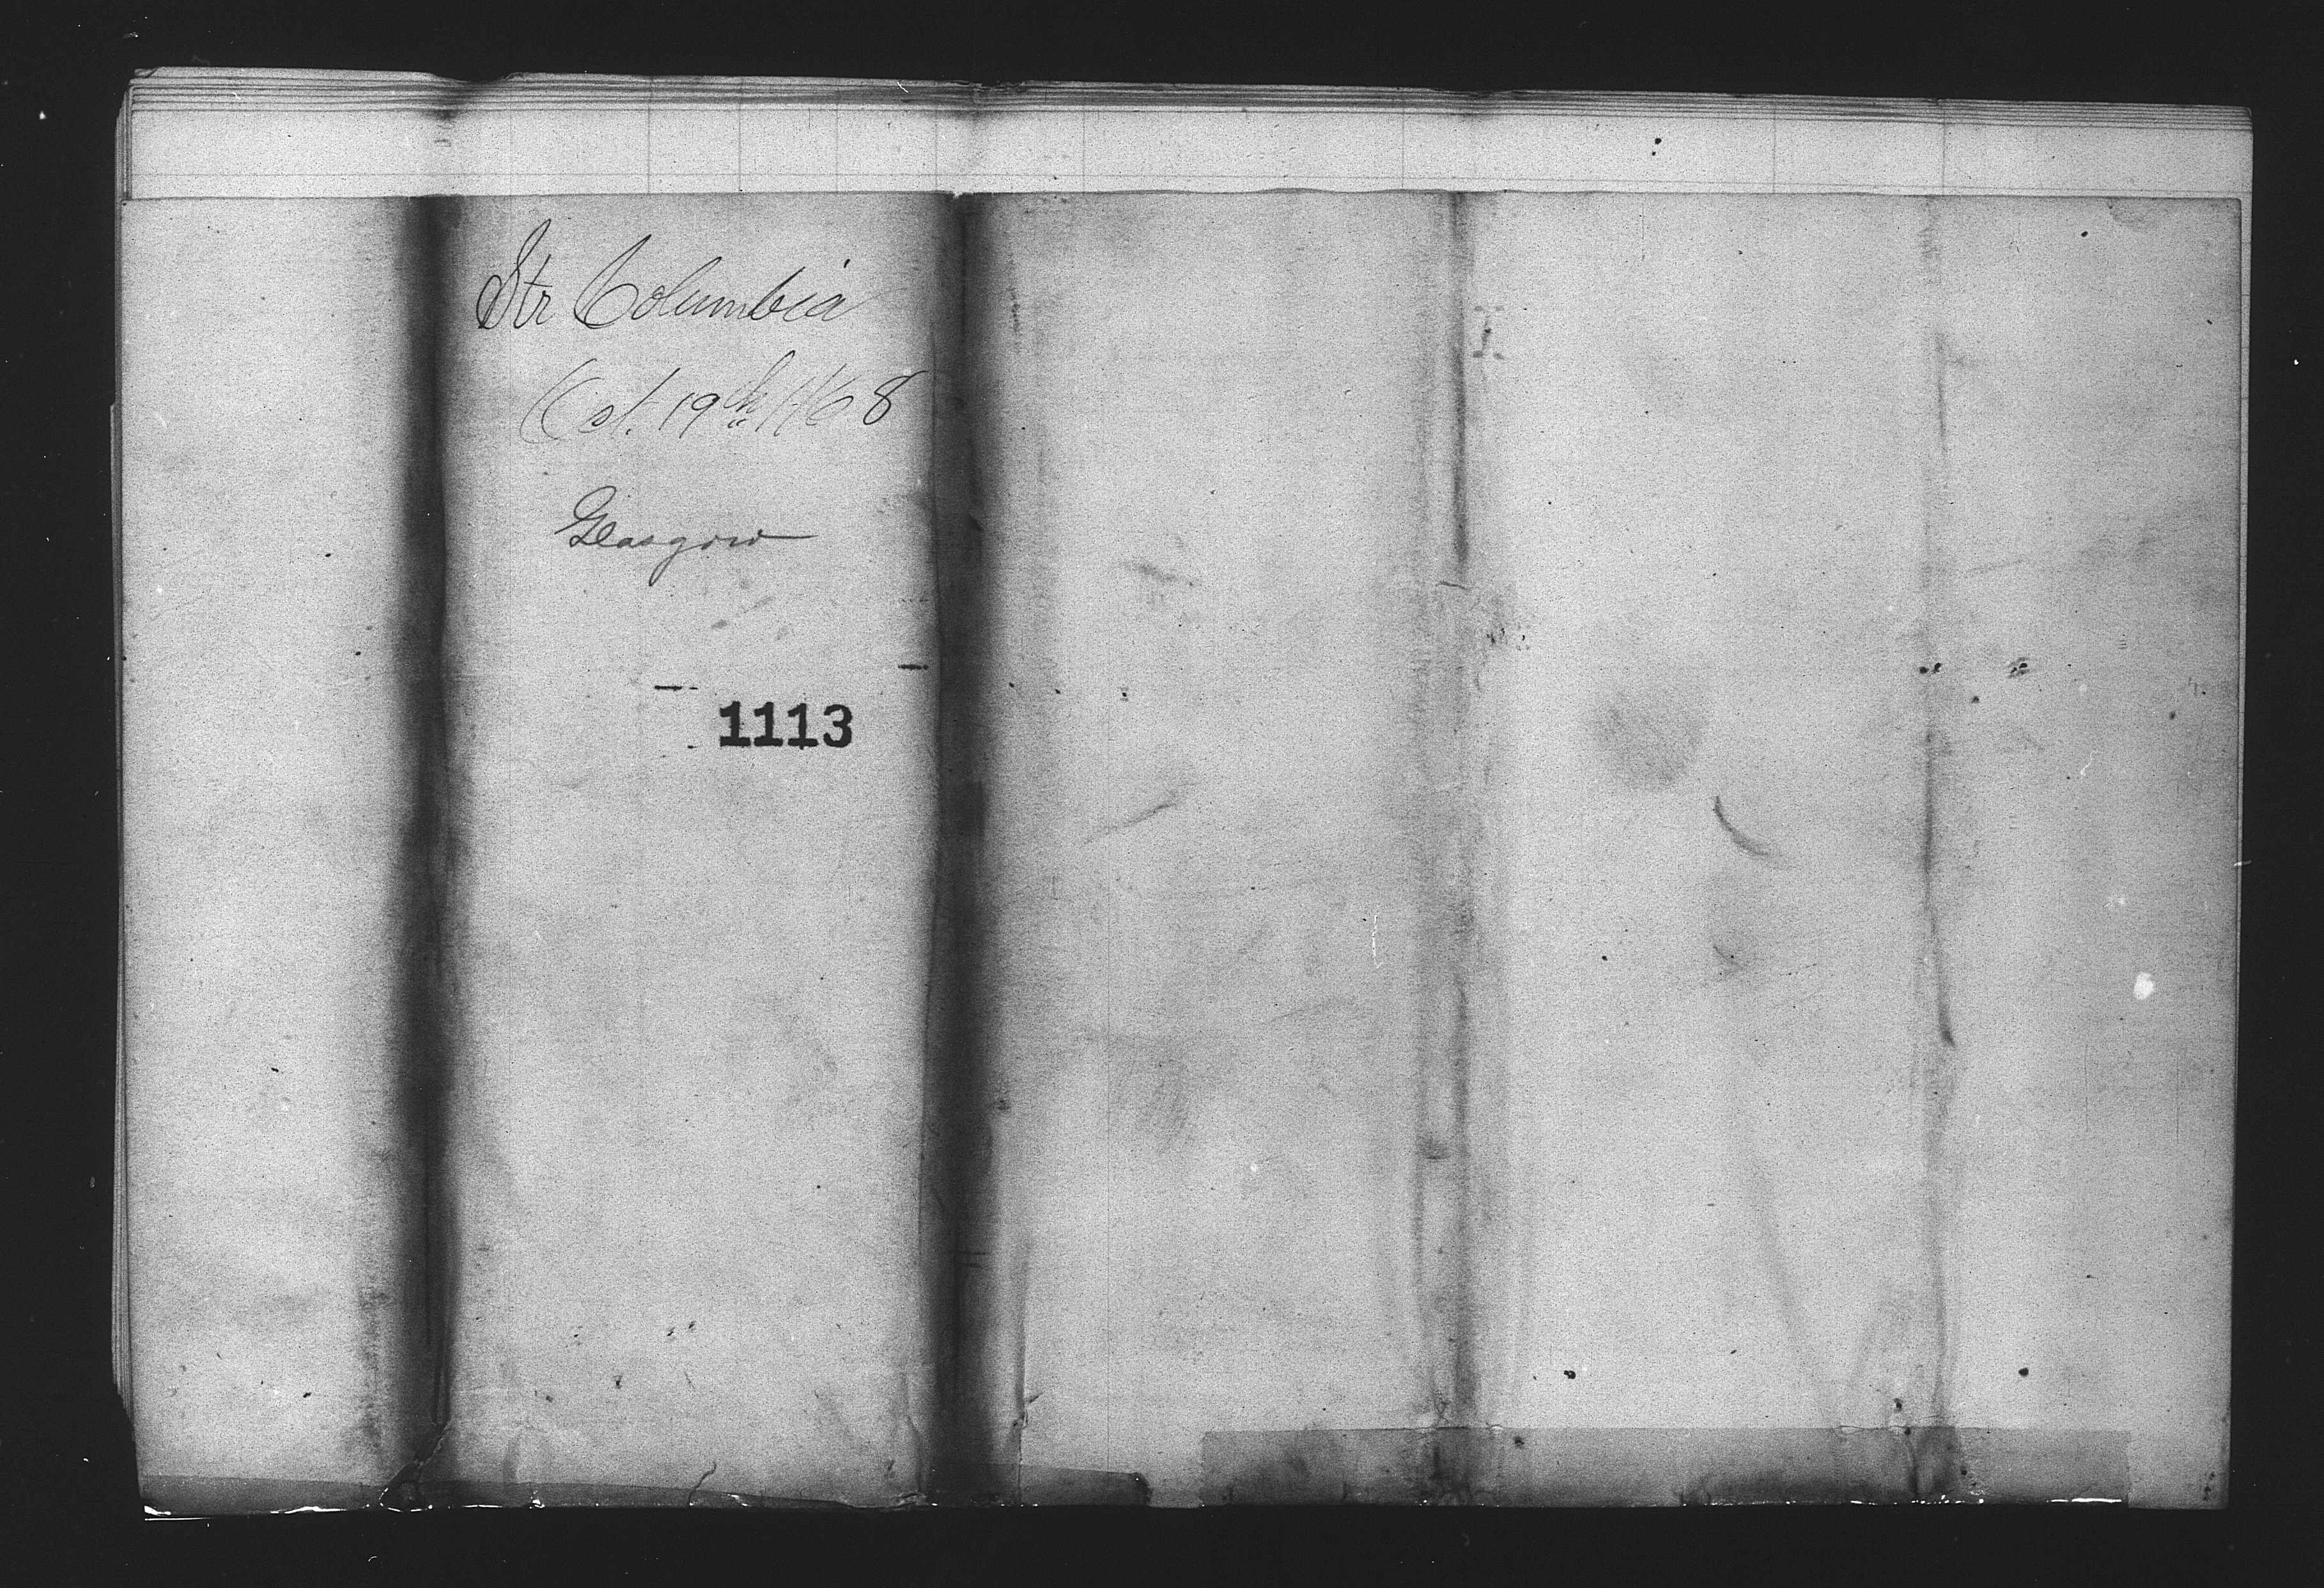 Str Columbia
Oct. 19th 1868
Glasgow
1113